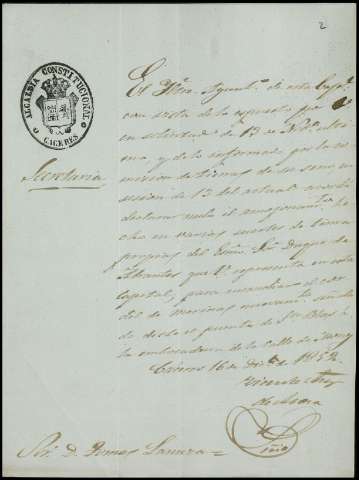 2
ALCALDÍA CONSTITUCIONAL
CACERES
Secretaría
El Ylltre. Ayuntº. de esta Capl.
con vista de lo espuesto por V.
en solicitud de 13 de Nove. últi-
mo, y de lo informado por la co-
mision de tierras de su seno, en
sesion de 13 del actual acordó
declarar nulo el amojonamto. he-
cho en varias suertes de tierra
propias del Escmo. Sor. Duque de
Abrantes que V. representa en esta
Capital, para
del de
do desde el puente de Sn. Blas á
la embocadura de la Calle de
Cáceres 16 de Dice. de 1852.
Vicente
Sor. D. Tomas